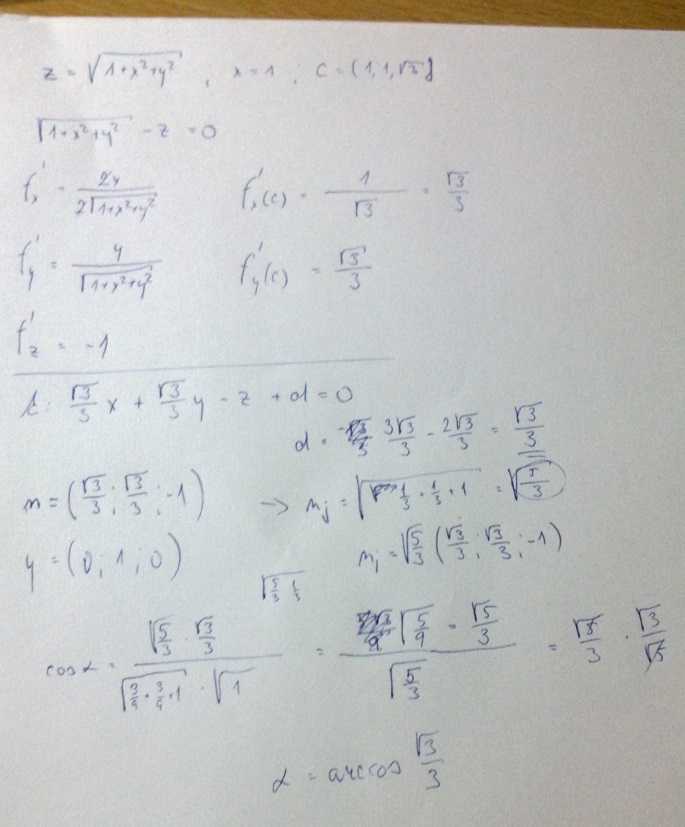 z = √(1+x²+y²) ; x = 1 ; C = (1,1,√3)
√(1+x²+y²) - z = 0
f'x = 2x / 2√(1+x²+y²) f'x(c) = 1/√3 = √3/3
f'y = y / √(1+x²+y²) f'y(c) = √3/3
f'z = -1
t: √3/3 x + √3/3 y - z + d = 0
d = 3√3/3 - 2√3/3 = √3/3
n = (√3/3 ; √3/3 ; -1) → nj = √(1/3 + 1/3 + 1) = √(5/3)
y = (0 ; 1 ; 0) nj = √(5/3) (√3/3 ; √3/3 ; -1)
√(5/3 · 1/3)
cos α = (√(5/3) · √3/3) / (√(3/9 + 3/9 + 1) · √1) = (√(5/9) = √5/3) / √(5/3) = √5/3 · √3/√5
α = arccos √3/3